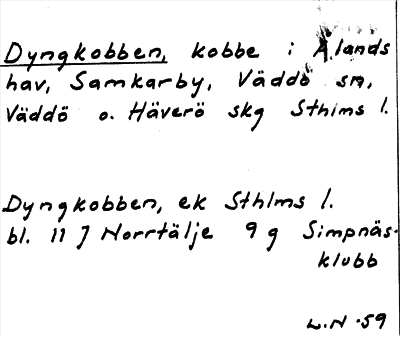 Dyngkobben, kobbe i Ålands
hav, Samkarby, Väddö sn,
Väddö o. Häverö skg Sthlms l.
Dyngkobben, ek Sthlms l.
bl. 11 J Norrtälje 9 g Simpnäs-
klubb
L.N -59